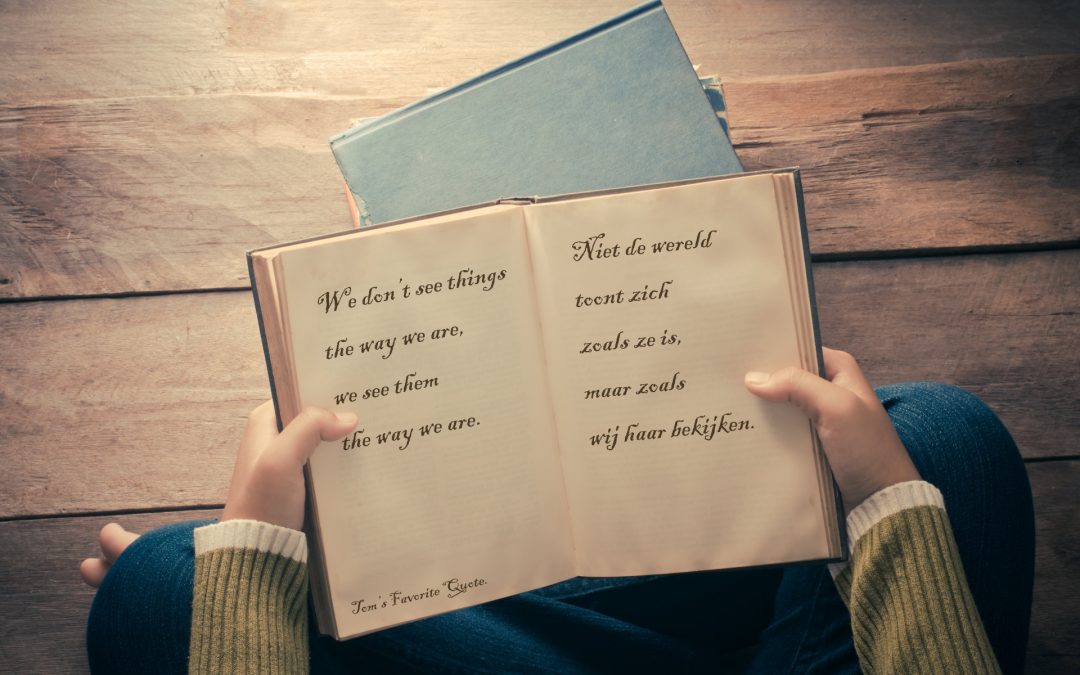 We don't see things
the way we are,
we see them
the way we are.
Tom's Favorite Quote.
Niet de wereld
toont zich
zoals ze is,
maar zoals
wij haar bekijken.